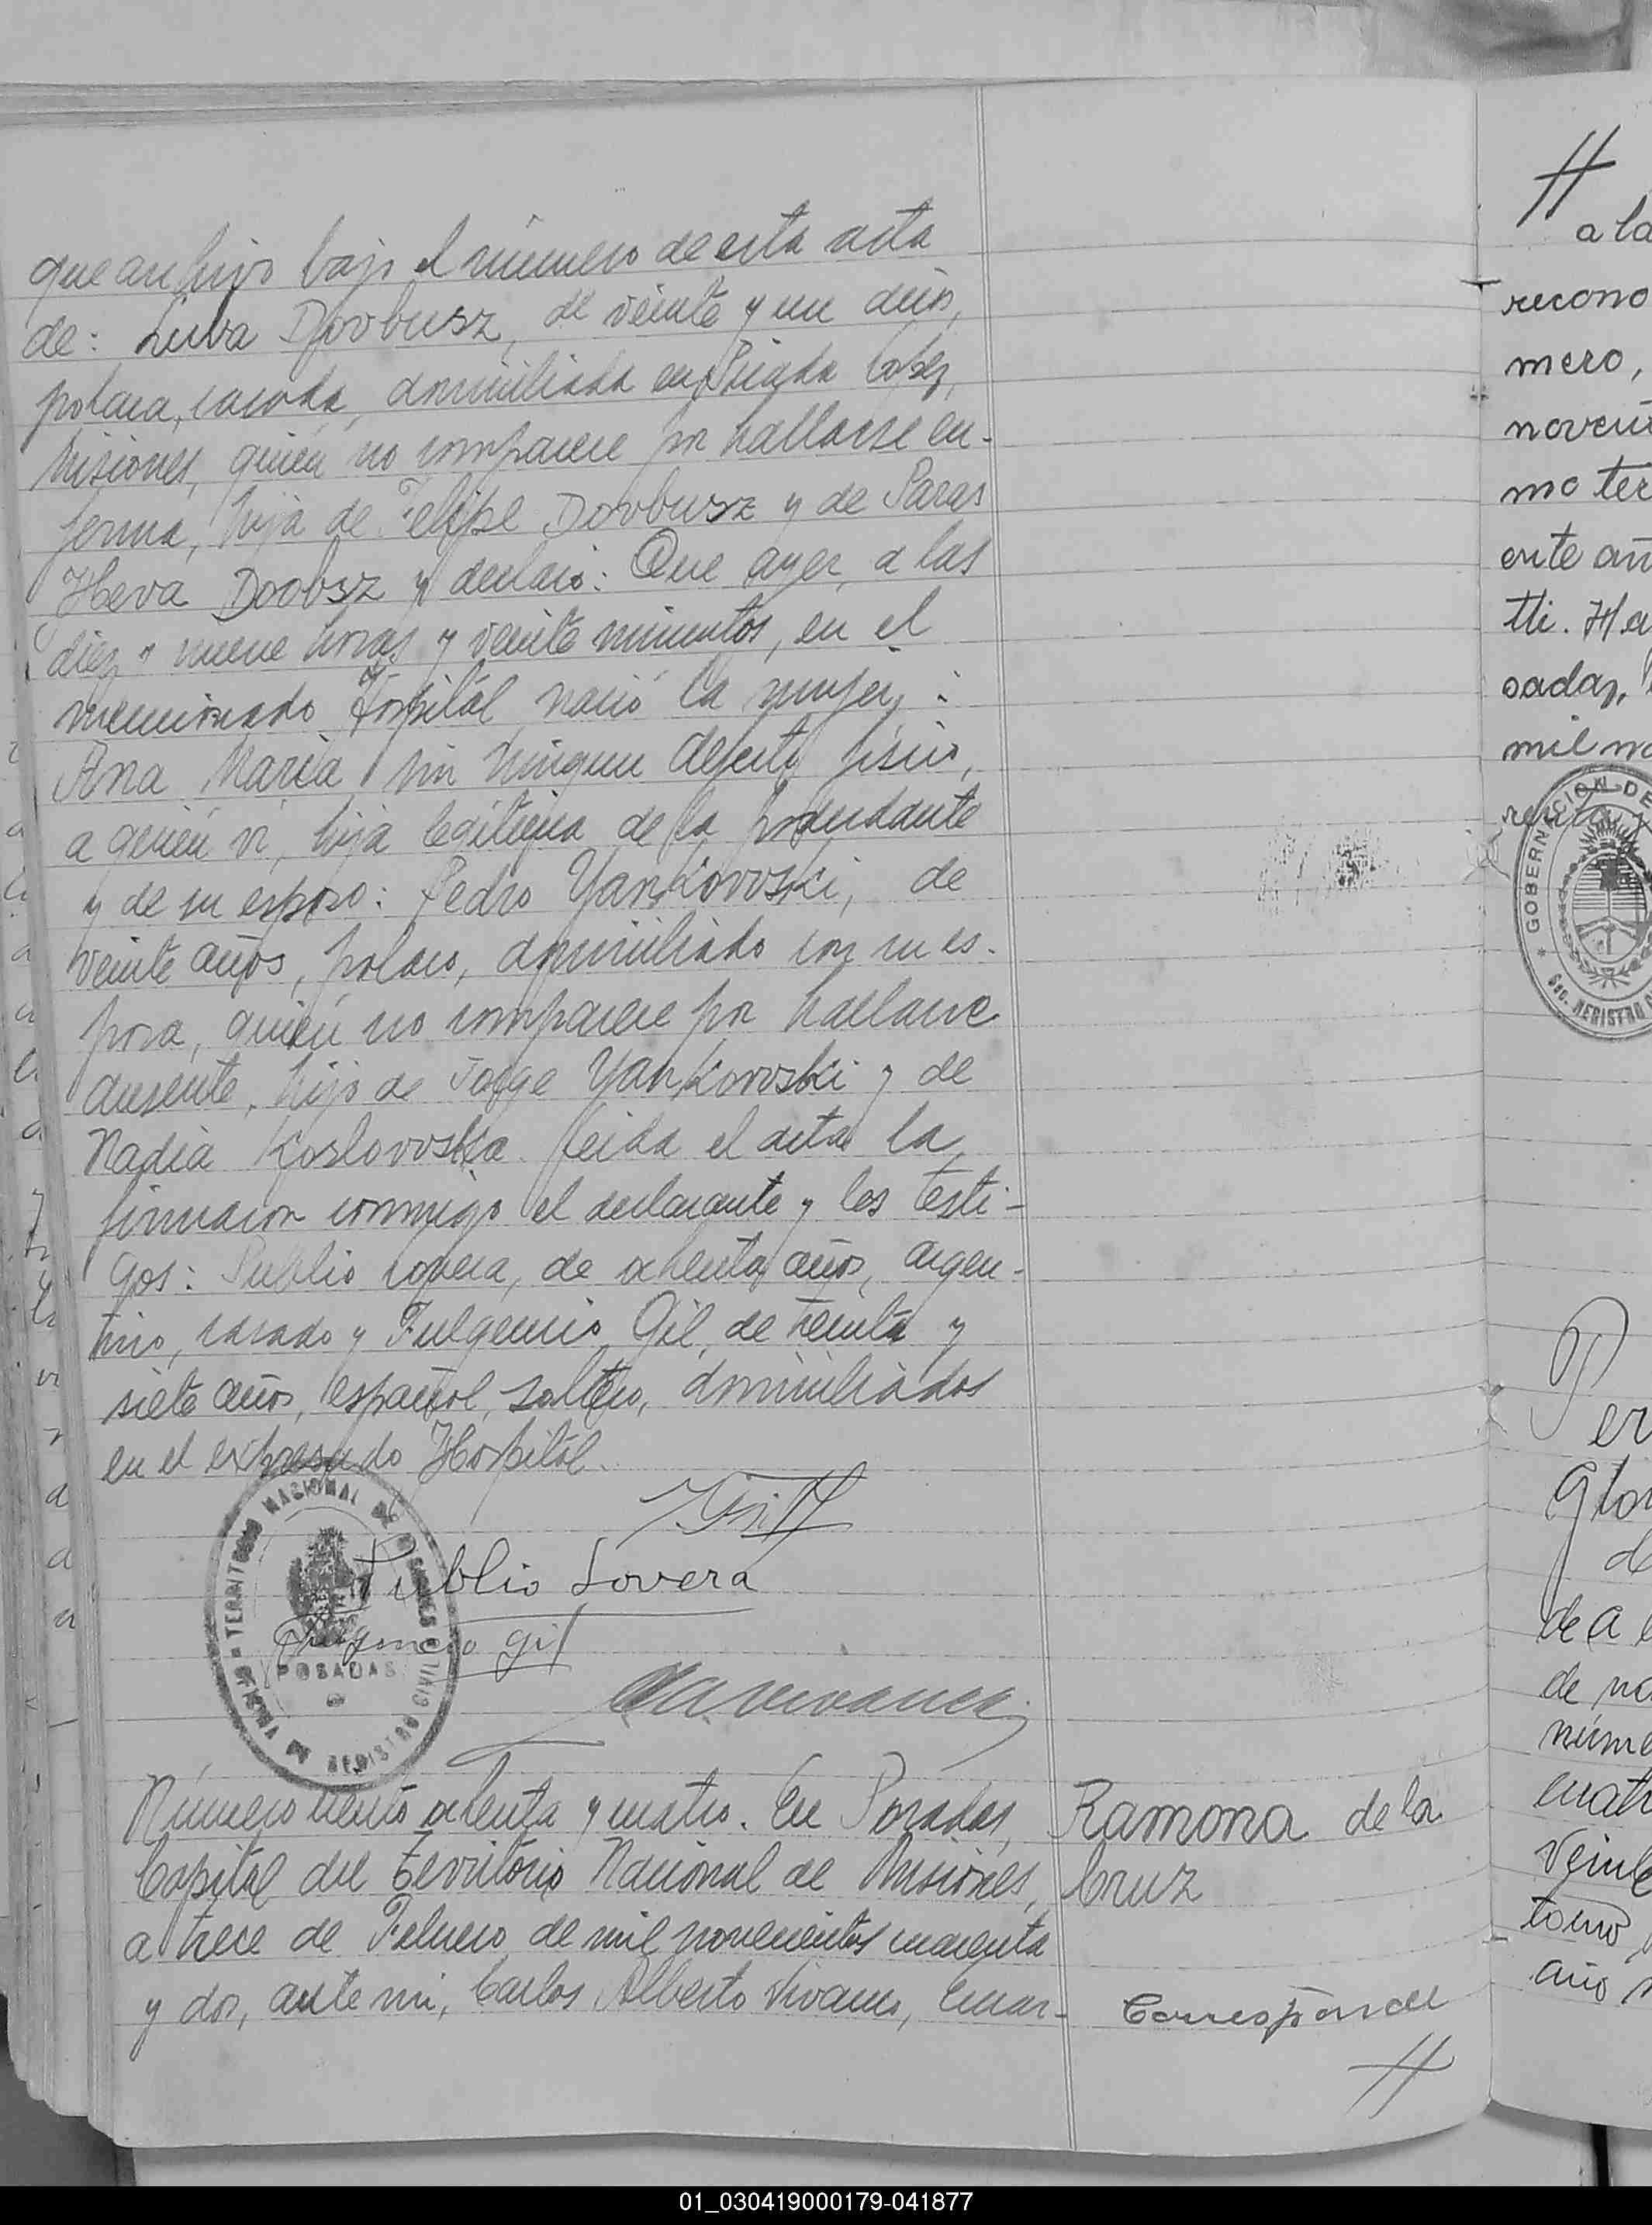 que archivo bajo el número de esta acta
de: Luba Doobusz, de veinte y un años,
polaca, casada, domiciliada en Picada López,
Misiones, quién no comparece por hallarse en-
ferma, hija de Felipe Doobusz y de Paras
Heva Doobsz y declaró: Que ayer, a las
diez y nueve horas y veinte minutos, en el
mencionado Hospital nació la mujer:
Ana Maria sin ningun defecto físico,
a quién vi, hija legitima de la
y de su esposo: Pedro Yankovoski, de
veinte años, polaco, domiciliado con su es-
posa, quién no comparece por hallarse
ausente, hijo de Jorge Yankovoski y de
Nadia Koslovoska. Leida el acta la
firmaron conmigo el declarante y los testi-
gos: Publio Lovera, de ochenta años, argen-
tino, casado y Fulgencio Gil, de treinta y
siete años, español, soltero, domiciliados
en el expresado Hospital.
Publio Lovera
Fulgencio Gil
TERRITORIO NACIONAL DE MISIONES
POSADAS
REGISTRO CIVIL
Número ciento ochenta y cuatro. En Posadas,
Capital del Territorio Nacional de Misiones,
a trece de Febrero de mil novecientos cuarenta
y dos, ante mi, Carlos Alberto Vivanco, Encar-
Ramona de la
Cruz
Corresponde
//
//
a la
recono
mero,
noven
mo ter
ente añ
tti. Ha
sadas,
mil no
GOBERNACION DE
REGISTRO
er
Glor
de
de a
de na
núme
cuatr
Veinte
tomo
año
01_030419000179-041877